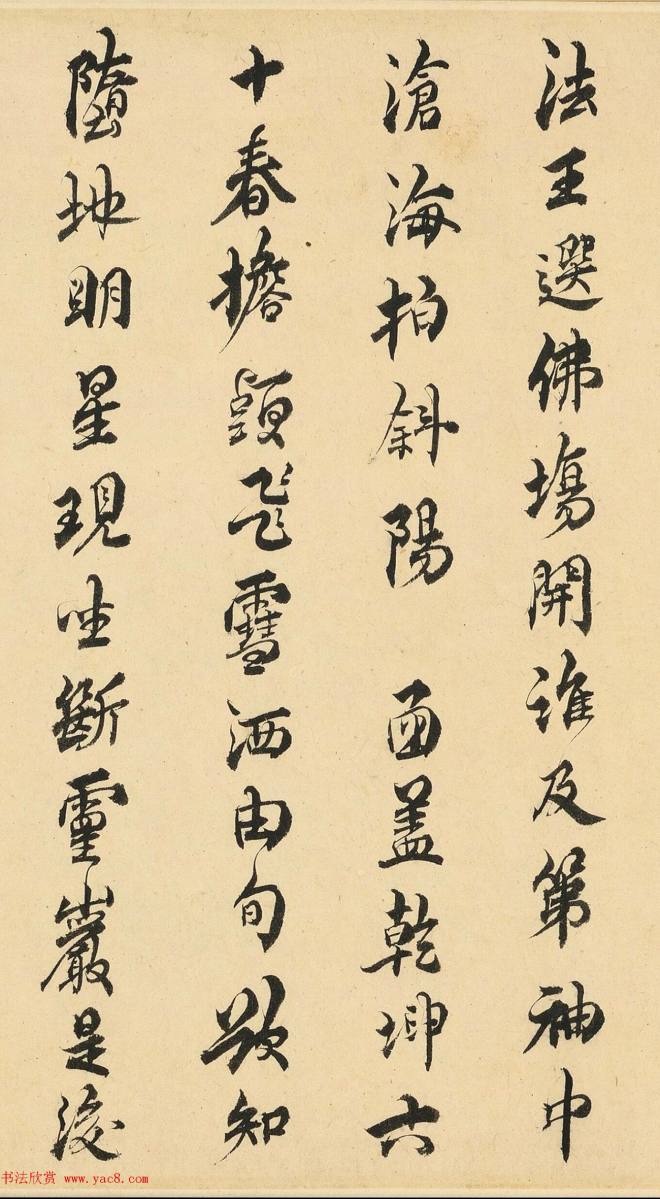 法王選佛塲開誰及第袖中
滄海拍斜陽 函蓋乾坤六
十春擔頭飛雪洒由旬欲知
墮地明星現坐斷靈巖是後
书法欣赏 www.yac8.com